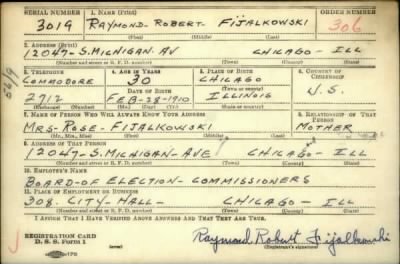 SERIAL NUMBER 1. NAME (Print) ORDER NUMBER
3019 RAYMOND-ROBERT-FIJALKOWSKI 306
(First) (Middle) (Last)
2. ADDRESS (Print)
12047-S.MICHIGAN.AV CHICAGO-ILL
(Number and street or R. F. D. number) (Town) (County) (State)
3. TELEPHONE 4. AGE IN YEARS 5. PLACE OF BIRTH 6. COUNTRY OF CITIZENSHIP
COMMODORE 30 CHICAGO
(Town or county)
DATE OF BIRTH U.S.
2712 FEB-28-1910 ILLINOIS
(Exchange) (Number) (Mo.) (Day) (Yr.) (State or country)
7. NAME OF PERSON WHO WILL ALWAYS KNOW YOUR ADDRESS 8. RELATIONSHIP OF THAT PERSON
MRS-ROSE-FIJALKOWSKI MOTHER
(Mr., Mrs., Miss) (First) (Middle) (Last)
9. ADDRESS OF THAT PERSON
12047-S.MICHIGAN-AVE CHICAGO-ILL
(Number and street or R. F. D. number) (Town) (County) (State)
10. EMPLOYER'S NAME
BOARD-OF ELECTION-COMMISSIONERS
11. PLACE OF EMPLOYMENT OR BUSINESS
308. CITY-HALL- CHICAGO-ILL
(Number and street or R. F. D. number) (Town) (County) (State)
I AFFIRM THAT I HAVE VERIFIED ABOVE ANSWERS AND THAT THEY ARE TRUE.
REGISTRATION CARD
D. S. S. Form 1
Raymond Robert Fijalkowski
(Registrant's signature)